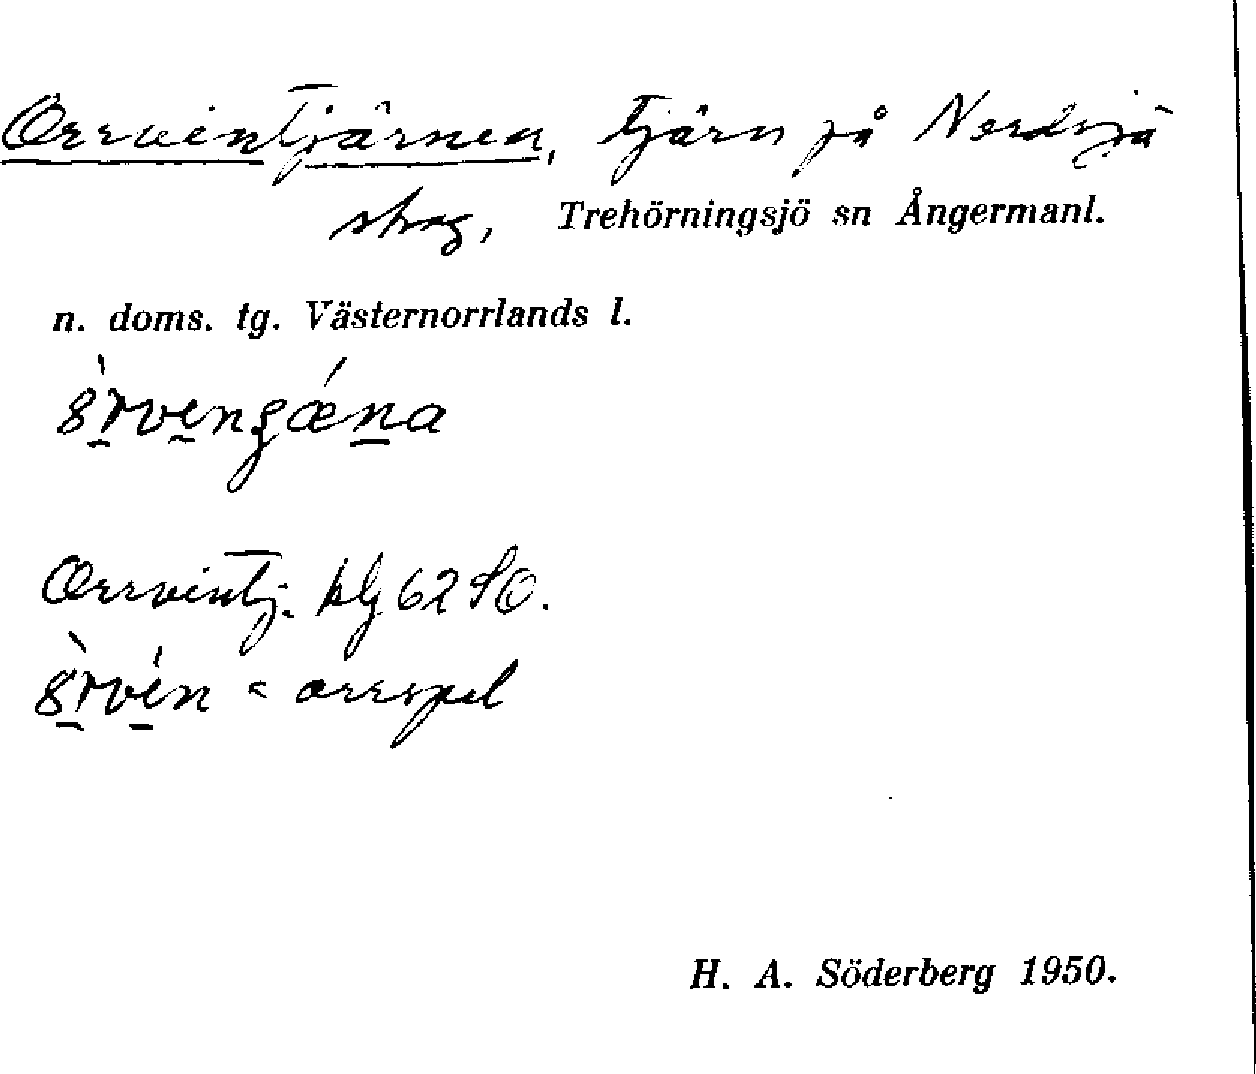 Orrvintjärnen, tjärn på Nordsjö
skog, Trehörningsjö sn Ångermanl.
n. doms. tg. Västernorrlands l.
Orrvintj. blg 62 SO.
= orrspel
H. A. Söderberg 1950.